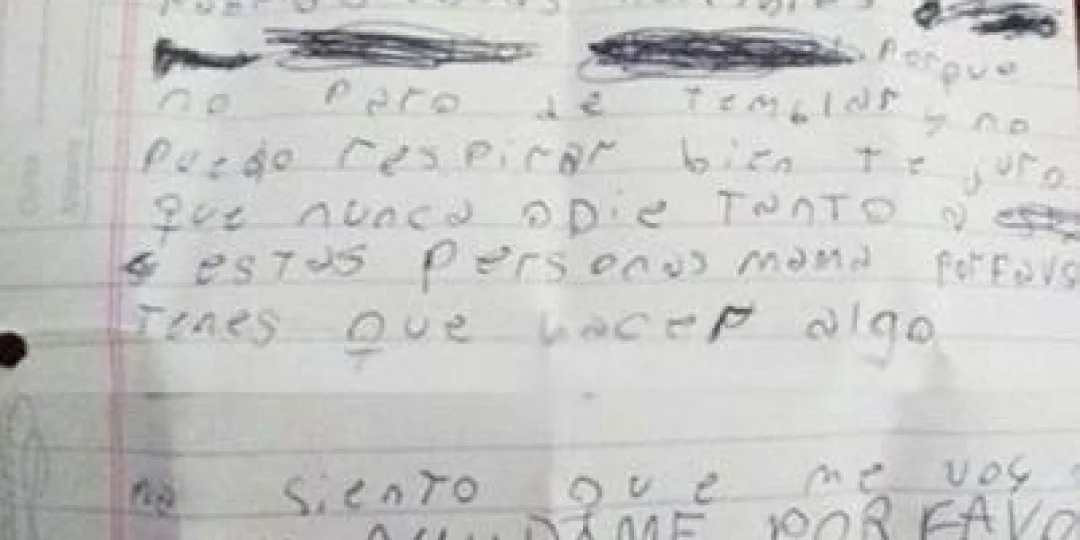 Porque
no paro de temblar y no
puedo respirar bien te juro
que nunca odie TanTO a
a estas personas mama porfavo
Tenes que hacer algo
siento que me voy
AYUDAME POR FAVO